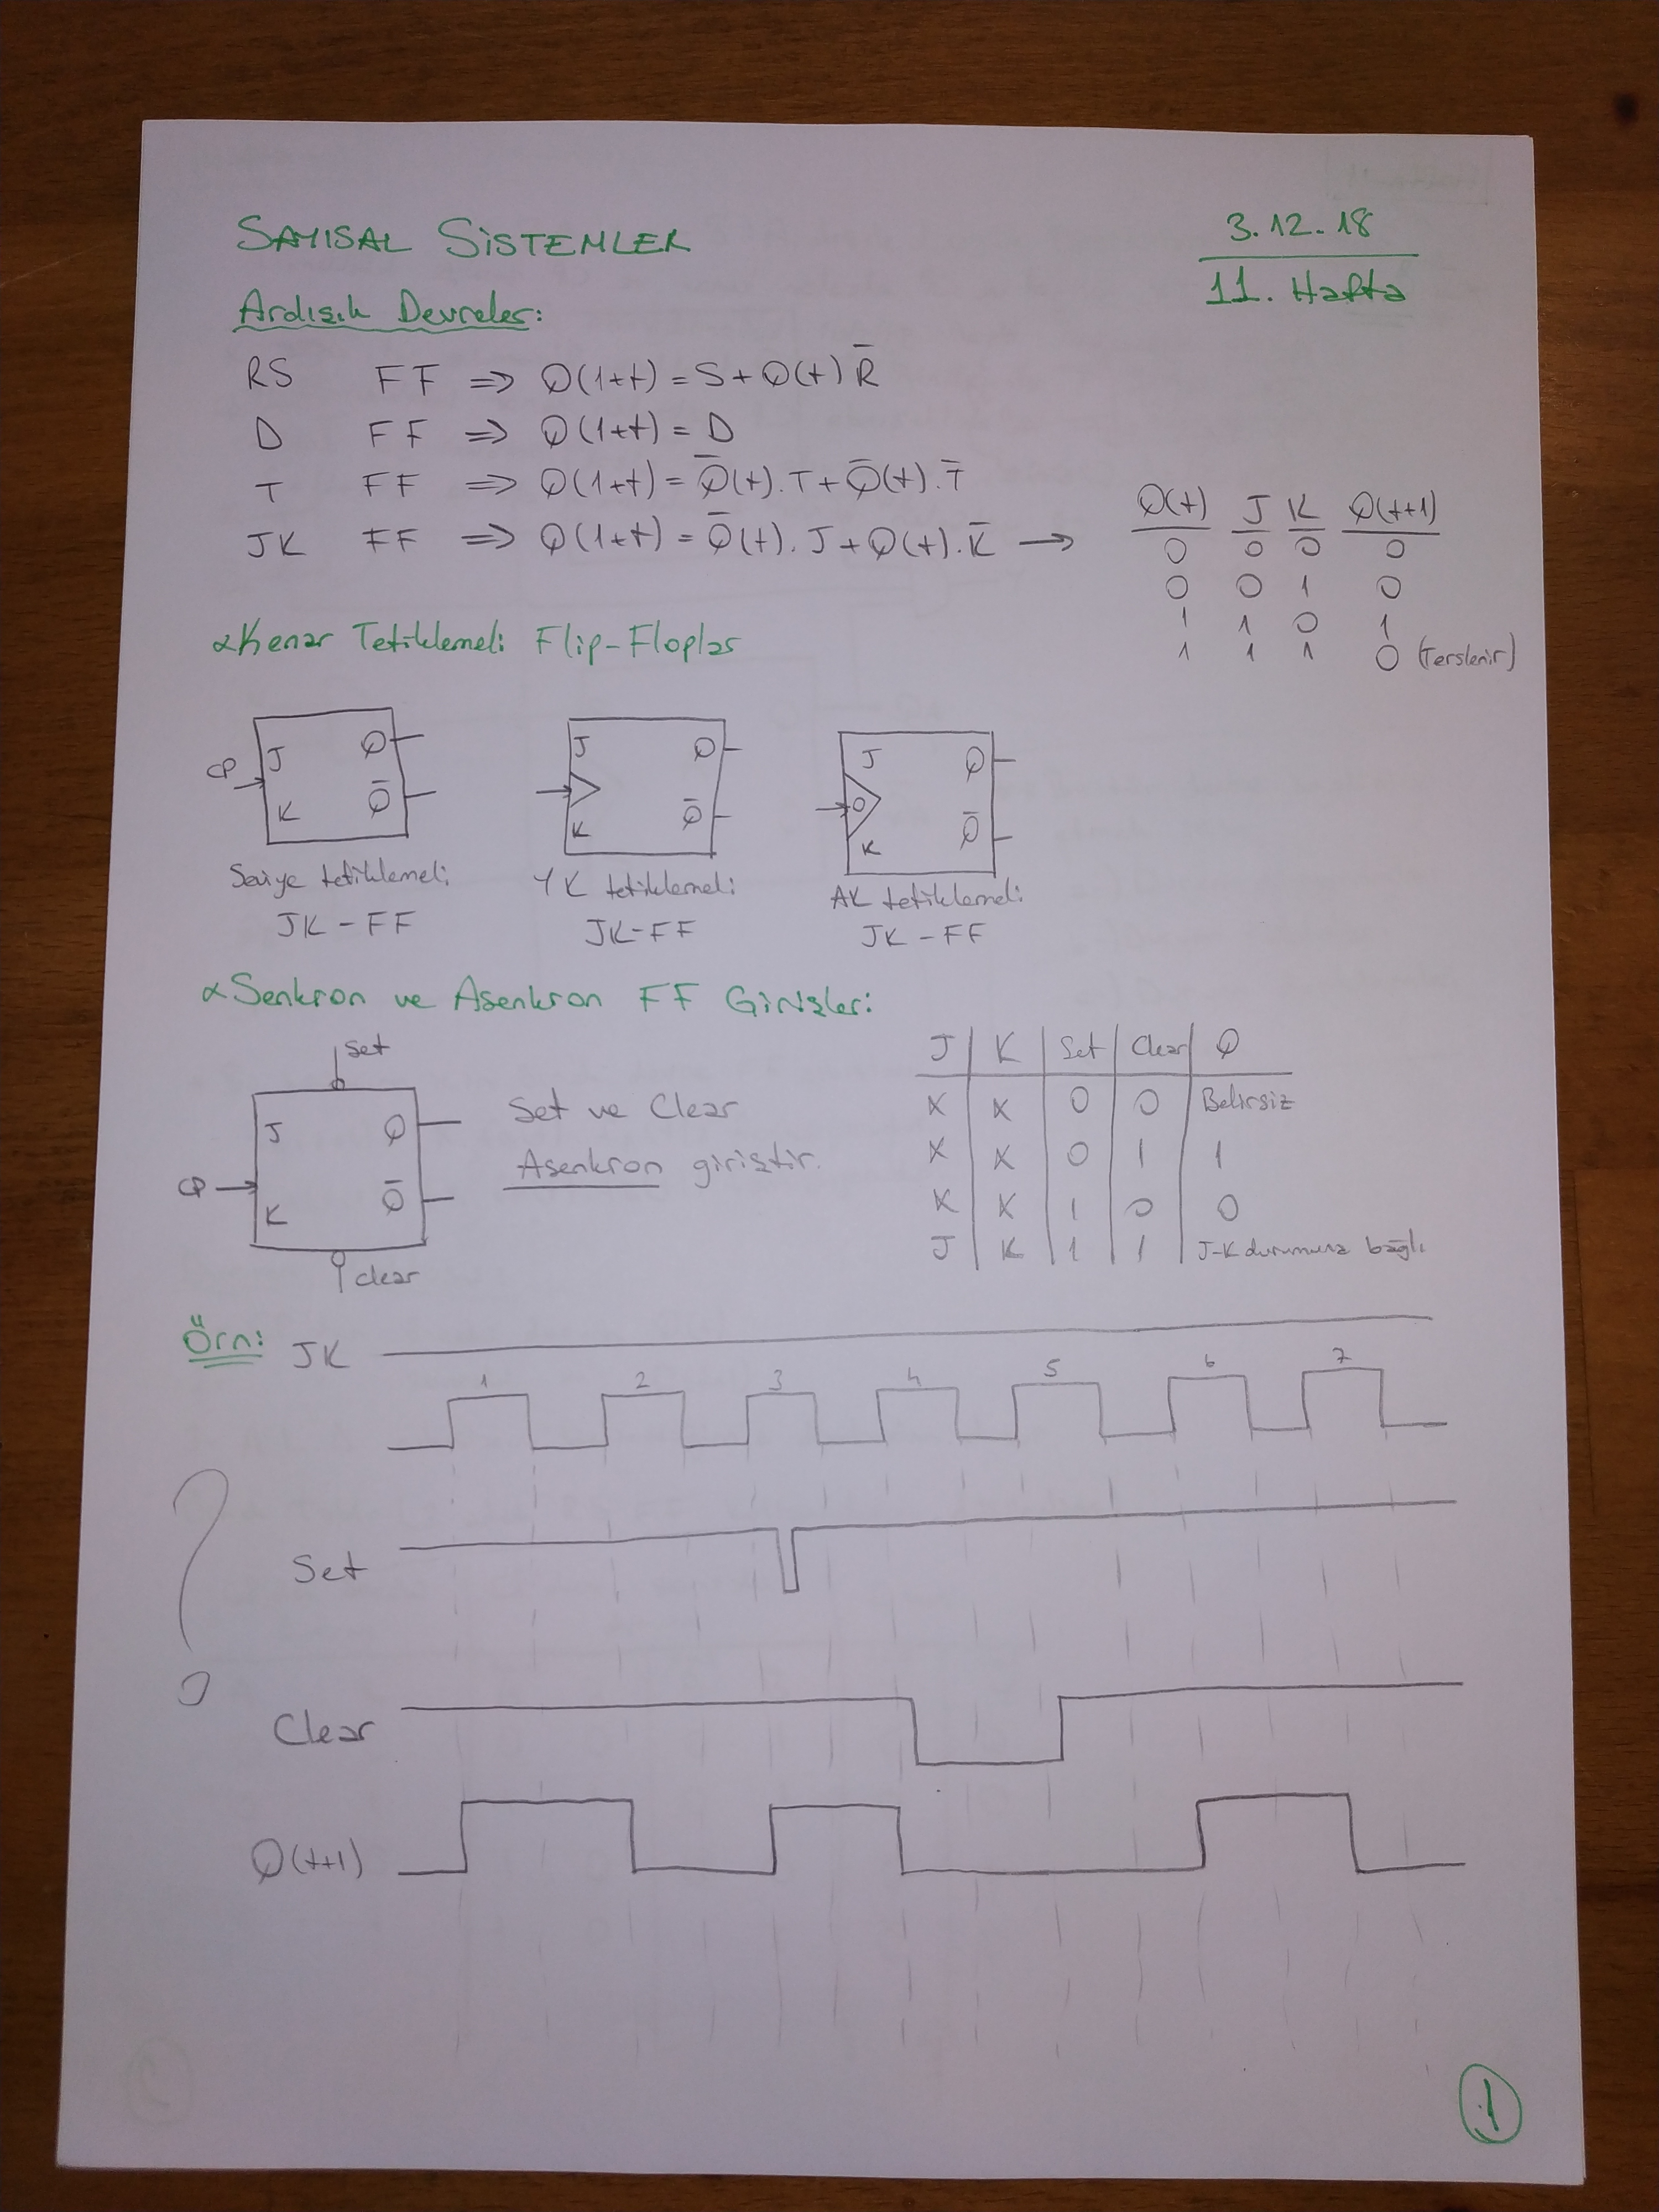 SAYISAL SİSTEMLER
3.12.18
11. Hafta
Ardışıl Devreler:
RS FF ⇒ Q(1+t) = S + Q(t) R̅
D FF ⇒ Q(1+t) = D
T FF ⇒ Q(1+t) = Q̅(t).T + Q̅(t).T̅
JK FF ⇒ Q(1+t) = Q̅(t).J + Q(t).K̅ →
Q(t) J K Q(t+1)
0 0 0 0
0 0 1 0
1 1 0 1
1 1 1 0 (Terslenir)
*Kenar Tetiklemeli Flip-Floplar
CP J K Q Q̅
J K Q Q̅
J K Q Q̅
Seviye tetiklemeli
JK-FF
YK tetiklemeli
JK-FF
AK tetiklemeli
JK-FF
*Senkron ve Asenkron FF Girişler:
Set
CP J K Q Q̅
Clear
Set ve Clear
Asenkron giriştir.
J K Set Clear Q
X X 0 0 Belirsiz
X X 0 1 1
X X 1 0 0
J K 1 1 J-K durumuna bağlı
Örn: JK
1 2 3 4 5 6 7
Set
Clear
Q(t+1)
1